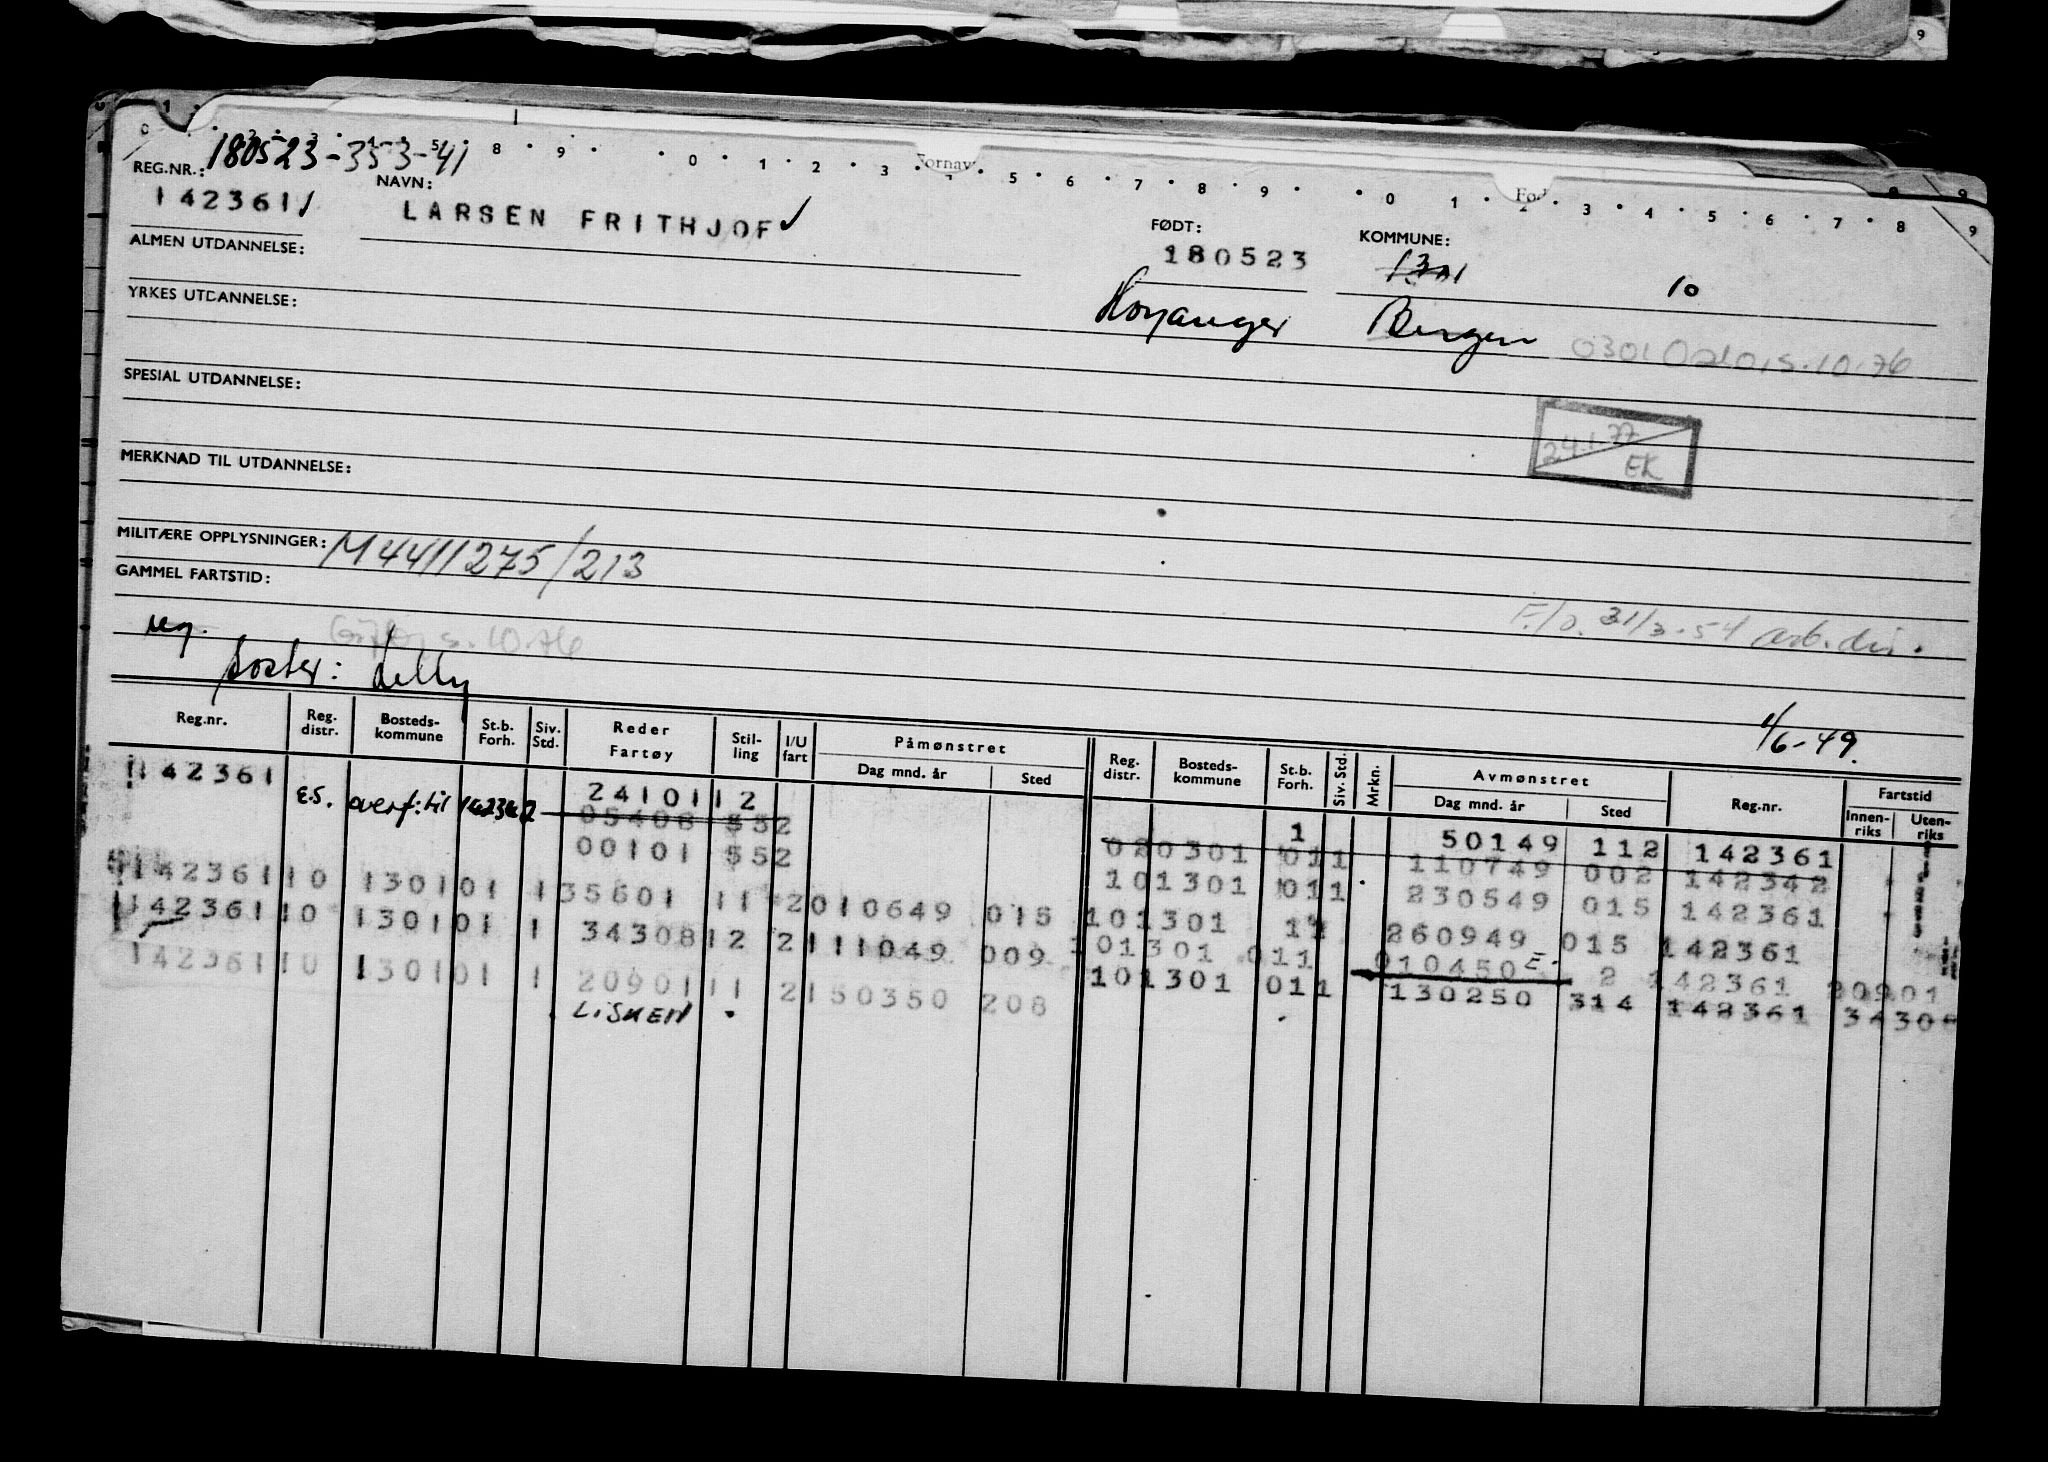 180523-353-41
REG.NR.: NAVN:
142361 LARSEN FRITHJOF
FØDT: KOMMUNE:
180523 1301 10
ALMEN UTDANNELSE:
YRKES UTDANNELSE:
Høyanger Bergen 0301 Oslo, s. 10.76
SPESIAL UTDANNELSE:
24.1.77
EK
MERKNAD TIL UTDANNELSE:
MILITÆRE OPPLYSNINGER: M4411275/213
GAMMEL FARTSTID:
F./o. 31/3-54 arb.dir.
reg. s. 10.76
søster: Lelly
4/6-49.
Reg.nr. Reg. distr. Bosteds-kommune St.b. Forh. Siv. Std. Reder Fartøy Stil-ling I/U fart Påmønstret Dag mnd. år Sted Reg. distr. Bosteds-kommune St.b. Forh. Siv. Std. Mrkn. Avmønstret Dag mnd. år Sted Reg.nr. Fartstid Innen-riks Uten-riks
142361 24101 12 1 50149 112 142361
E.S. overf: til 142342 05408 552 020301 011 110749 002 142342
00101 552 101301 011 230549 015 142361
142361 10 1301 01 1 35601 11 2 010649 015 101301 11 260949 015 142361
142361 10 1301 01 1 34308 12 2 111049 009 101301 011 010450 E. 2 142361 20901
142361 10 1301 01 1 20901 11 2 150350 208 101301 011 130250 314 142361 34308
LISKEN